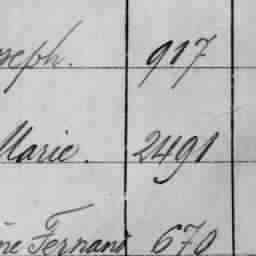 oseph. 917
Marie. 2491
ne Fernand 670